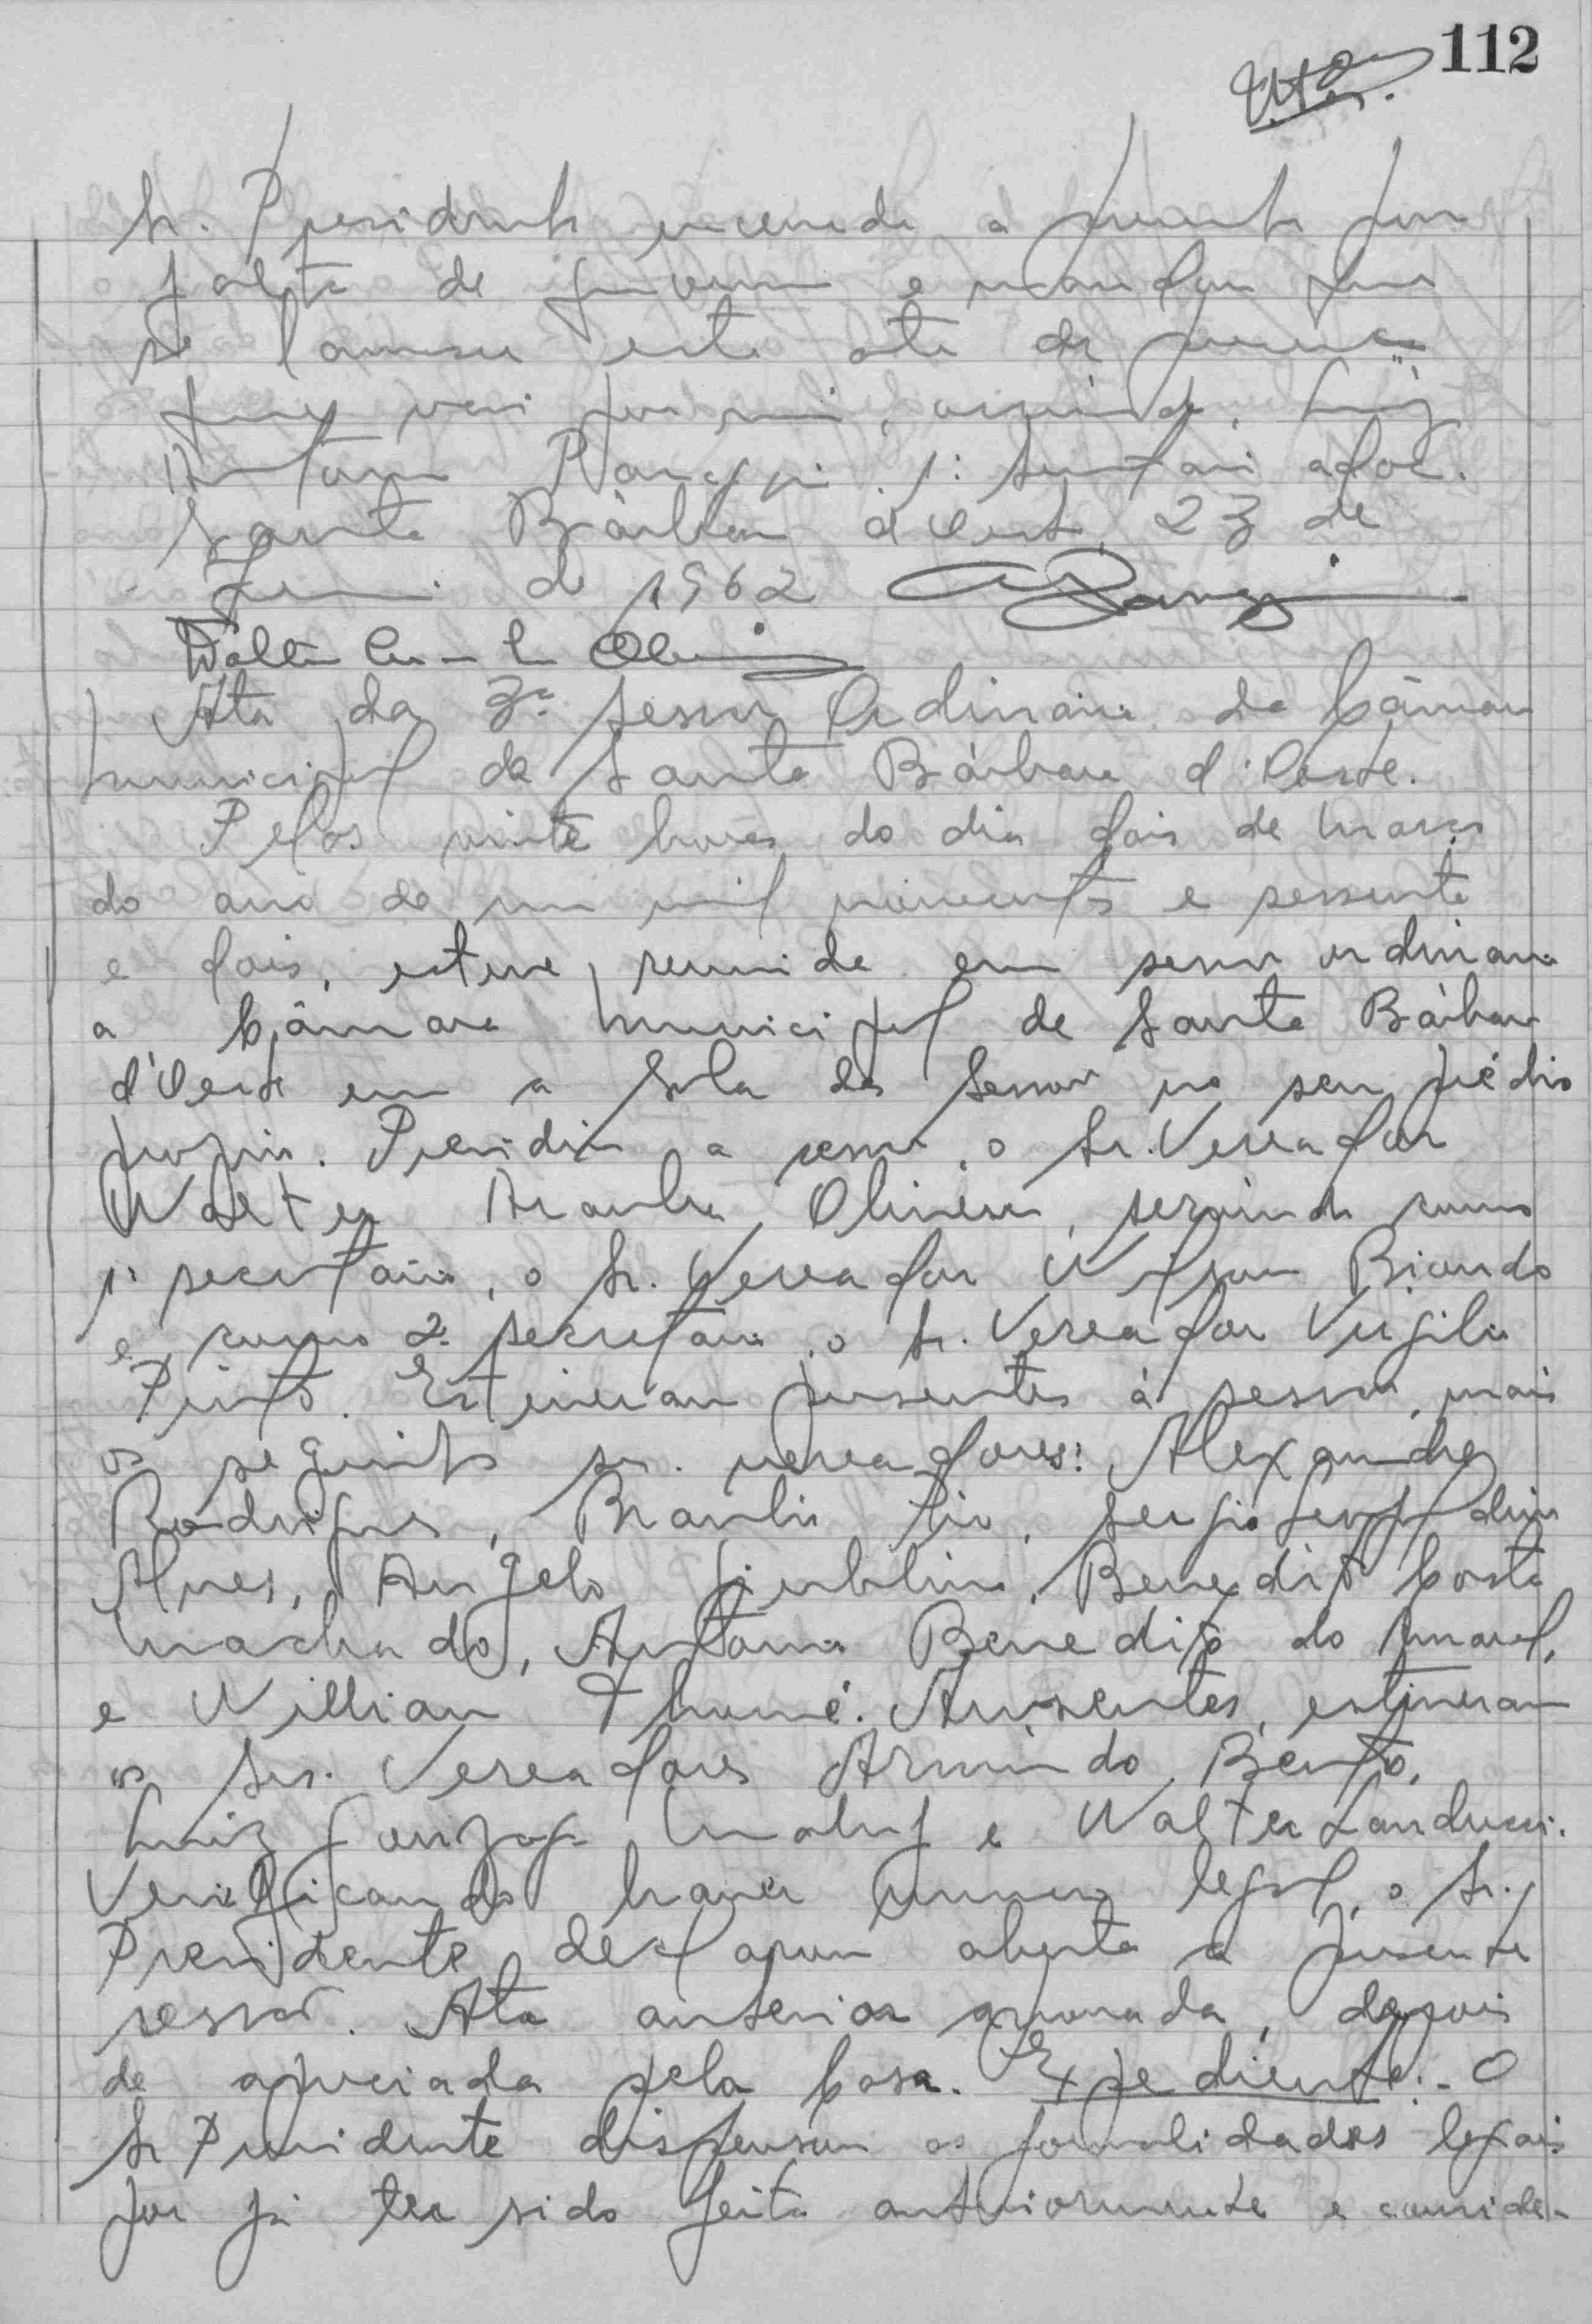 112
Sr. Presidente encerrada a presente por
falta de quorum e mandou que
se lavrasse esta ata de presença
que vai por mim, assinada, Luiz
Antonio Panaggio 1º secretario adoc.
Santa Bárbara d'Oeste, 23 de
de 1962
Walter
Ata da 3ª sessão Ordinaria da Câmara
Municipal de Santa Bárbara d'Oeste.
Pelas vinte horas do dia dois de Março
do ano de um mil novecentos e sessenta
e dois, esteve reunida em sessão ordinaria
a Câmara Municipal de Santa Bárbara
d'Oeste em a Sala das Sessões no seu prédio
proprio. Presidiu a sessão, o Sr. Vereador
Walter Aranha Oliveira, servindo como
1º secretario, o Sr. Vereador Wilson Biondo
e como 2º secretario, o Sr. Vereador Virgilio
Pinto. Estiveram presentes á sessão, mais
os seguintes srs. vereadores: Alexandre
Rodrigues, Braulio Pio, Sergio Leopoldino
Alves, Angelo Giubbina, Benedito Costa
Machado, Antonio Benedito do Amaral,
e Willian Thomé. Ausentes, estiveram
os Srs. Vereadores Armindo Bento,
Luiz Gonzaga Maluf e Walter Landucci.
Verificando haver numero legal, o Sr.
Presidente declarou aberta a presente
sessão. Ata anterior aprovada, depois
de apreciada pela Casa. Expediente:- O
Sr Presidente dispensou as formalidades legais
por já ter sido feita anteriormente e conside-